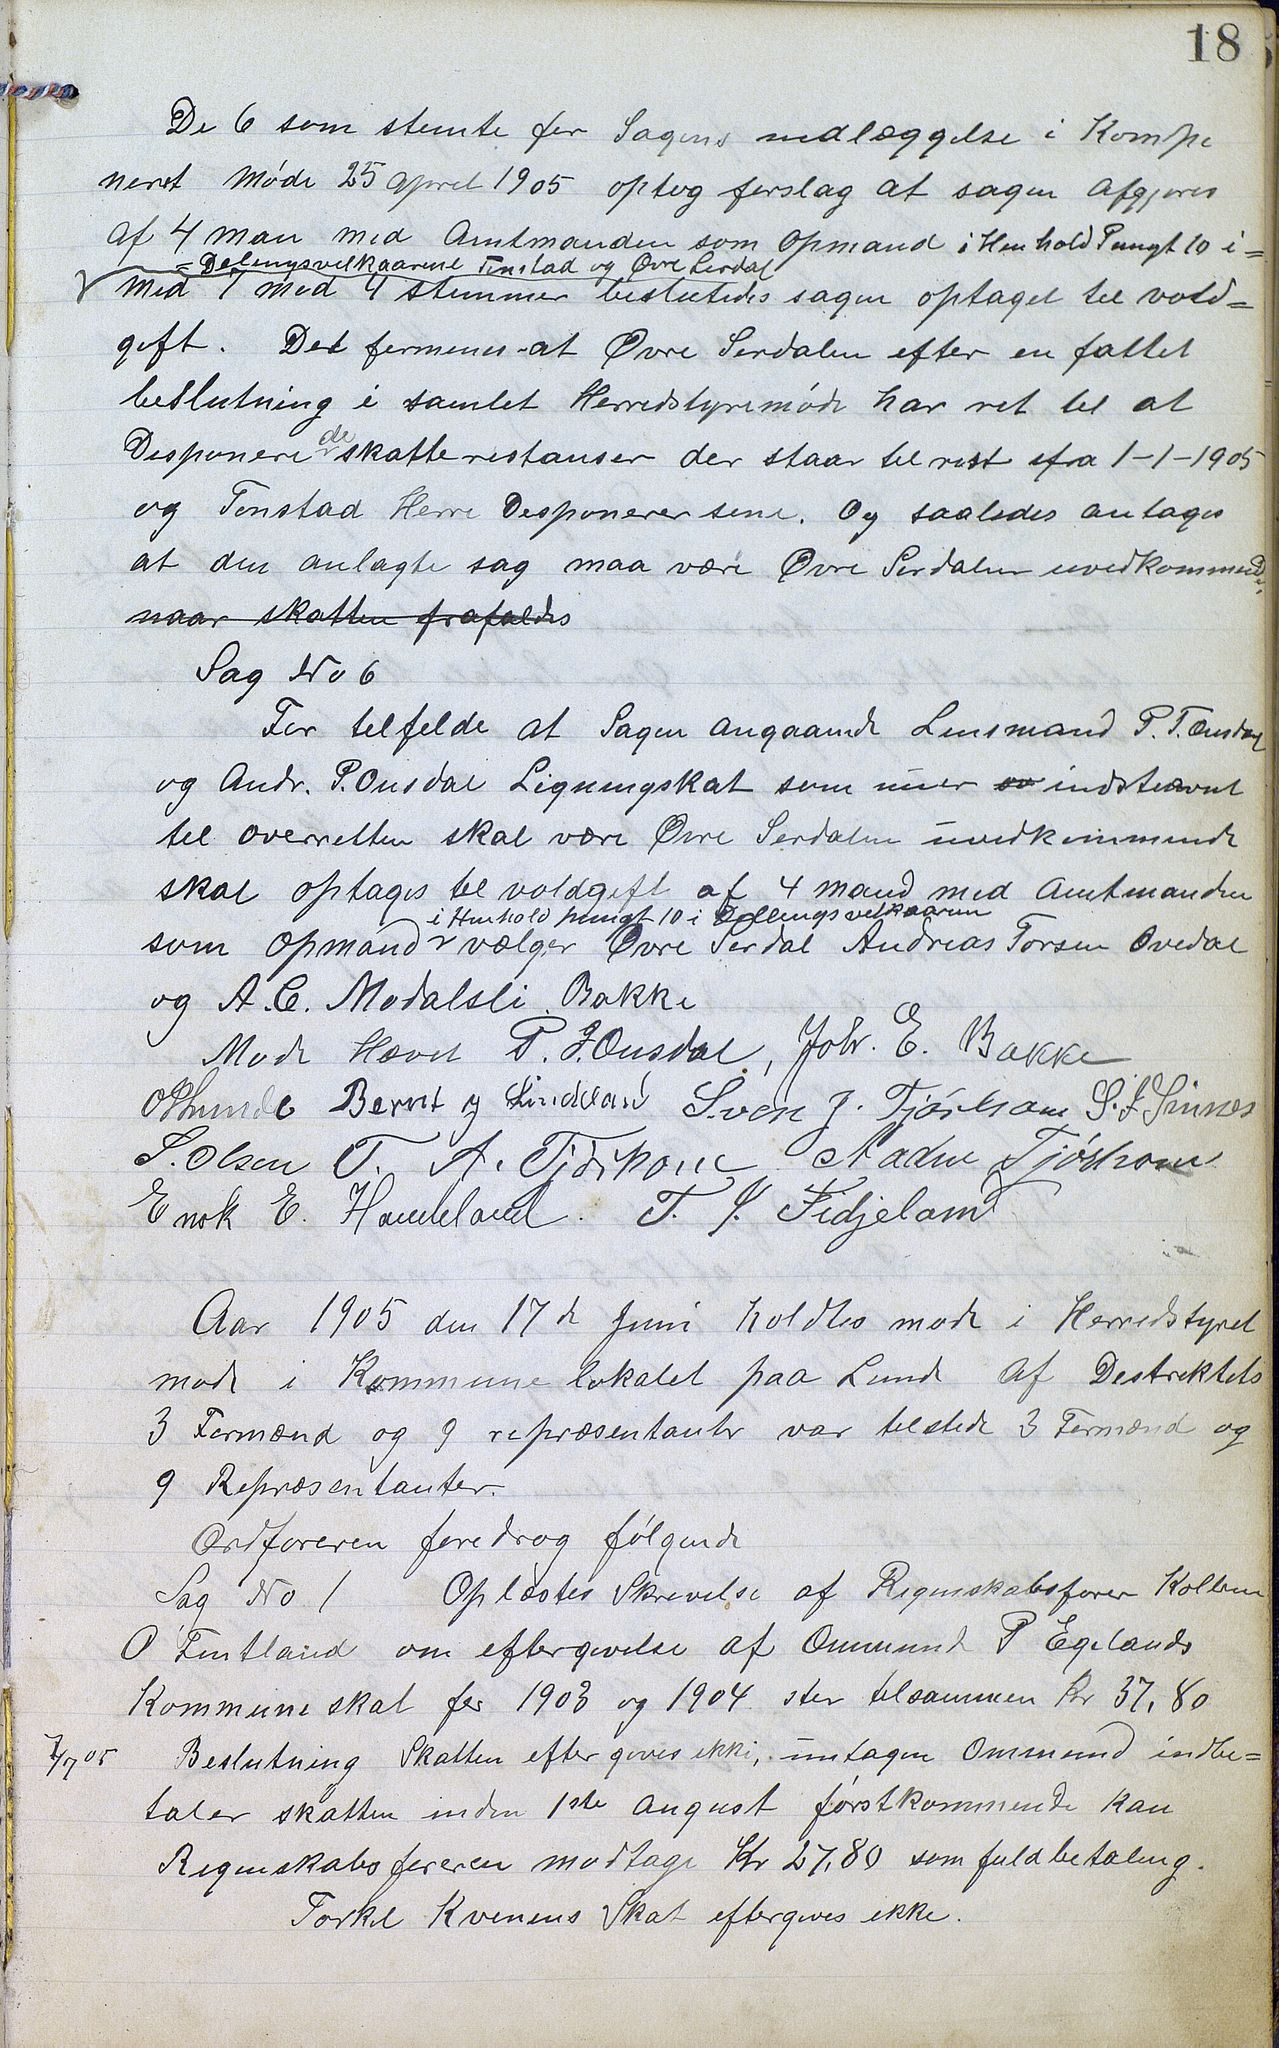 18
De 6 som stemte for Sagens nedlæggelse i Kombi
neret Møde 25 April 1905 optog forslag at sagen afgjøres
af 4 man med Amtmanden som Opmand i Henhold Pungt 10 i=
=Delingsvelkaarene Tonstad og Øvre Serdal
Med 7 mod 4 stemmer beslutedes sagen optaget til vold=
gift. Det formenes at Øvre Serdalen efter en fattet
beslutning i samlet Herredstyremøde har ret til at
de
Desponere skatterestanser der staar til rest ifra 1-1-1905
og Tonstad Herre Desponerer sene. Og saaledes antages
at den anlagte sag maa være Øvre Serdalen uvedkommende
naar skatten frafaldes
Sag No 6
For telfelde at Sagen angaaende Lensmand P. T. Ousdal
og Andr. P. Ousdal Ligningskat som indstævnt
til overretten skal være Øvre Serdalen uvedkommende
skal optages til voldgift af 4 mand med Amtmanden
i Henhold pungt 10 i Delingsvelkaarene
som Opmand vælger Øvre Serdal Andreas Torsen Ovedal
og A. C. Modalsli Bakke
Møde Hævet P. J. Ousdal, Joh. E. Bakke
Bernt J Lindeland Sven J. Tjørhom S. J. Sinnes
S. Olsen T. A. Tjørhom Aadne Tjørhom
Enok E. Haneland. T. J. Fidjeland
Aar 1905 den 17de Juni holdtes møde i Herredstyret
møde i Kommunelokalet paa Lunde af Destriktets
3 Formænd og 9 repræsentanter var tilstede 3 Formænd og
9 Repræsentanter.
Ordføreren foredrog følgende
Sag No 1 Oplæstes Skrivelse af Regnskabsfører Kolben
O Fintland om eftergivelse af Ommund P Egelands
Kommuneskat for 1903 og 1904 stor tilsammen Kr 37,80
7/7 05 Beslutning Skatten eftergives ikke, untagen Ommund indbe=
taler skatten inden 1ste August førstkommende kan
Regnskabsføreren modtage Kr 27,80 som fuld betaling.
Torkel Kvenens Skat eftergives ikke.